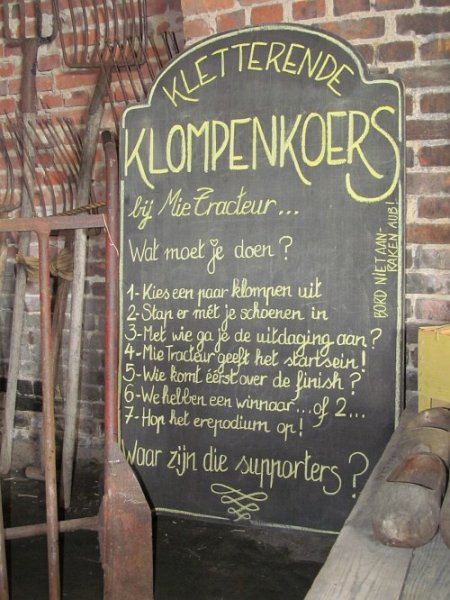 KLETTERENDE
KLOMPENKOERS
bij Mie Tracteur...
Wat moet je doen?
1- Kies een paar klompen uit
2- Stap er mét je schoenen in
3- Met wie ga je de uitdaging aan?
4- Mie Tracteur geeft het startsein!
5- Wie komt éérst over de finish?
6- We hebben een winnaar...of 2...
7- Hop het erepodium op!
Waar zijn die supporters?
BORD NIET AAN-
RAKEN AUB!